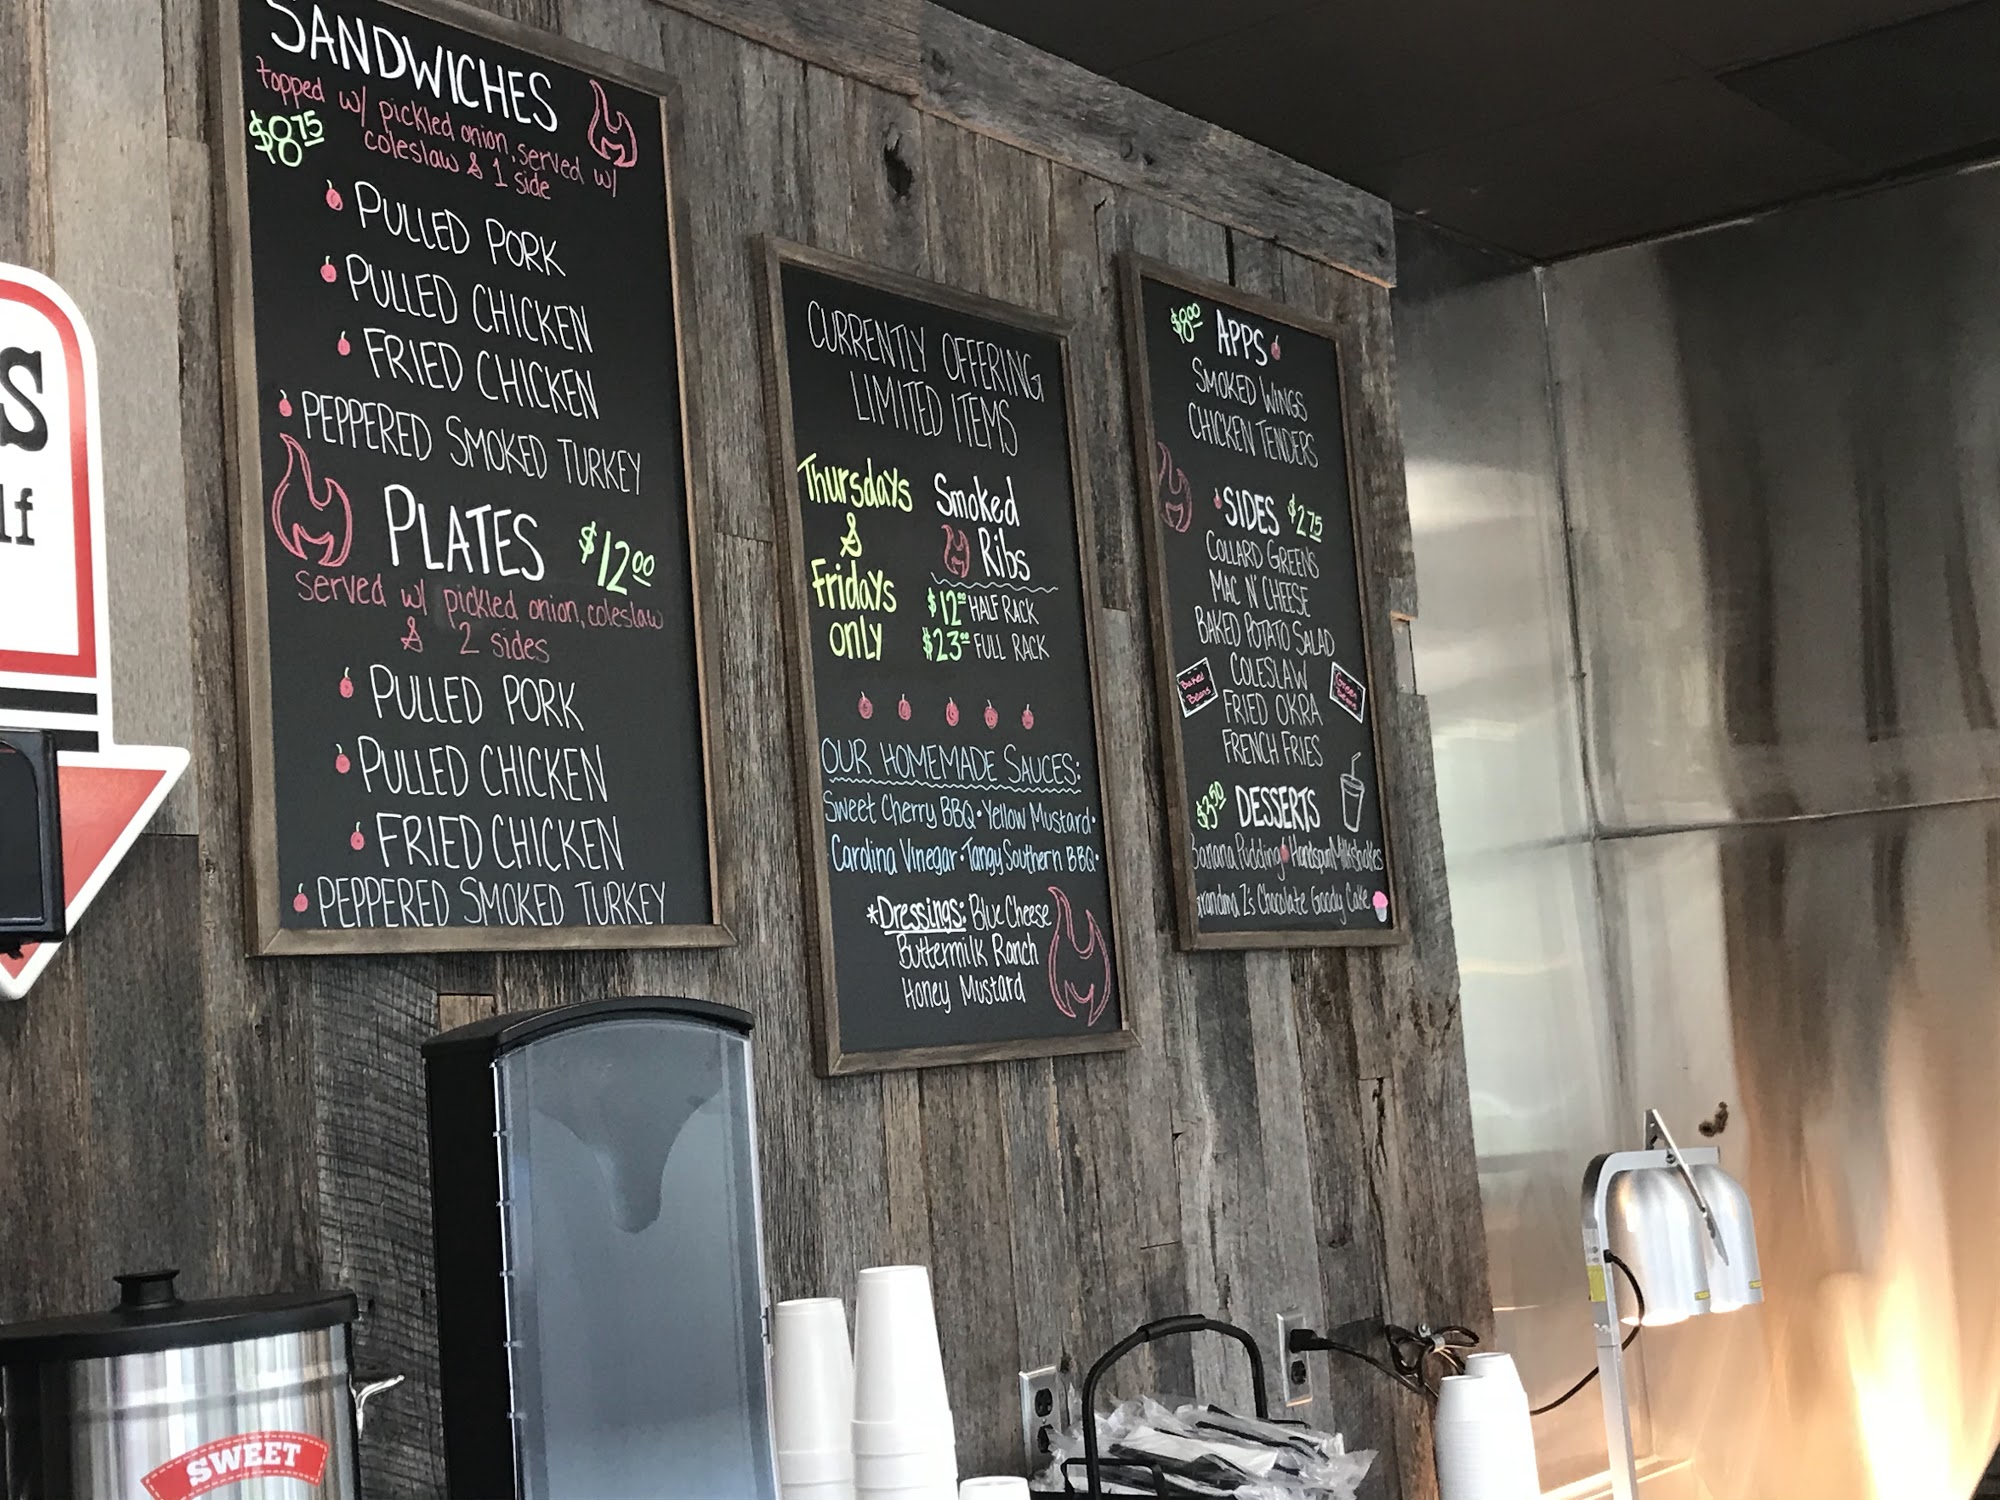 SANDWICHES
topped w/ pickled onion, served w/
$8.75
coleslaw & 1 side
PULLED PORK
PULLED CHICKEN
FRIED CHICKEN
PEPPERED SMOKED TURKEY
PLATES $12.00
served w/ pickled onion, coleslaw
& 2 sides
PULLED PORK
PULLED CHICKEN
FRIED CHICKEN
PEPPERED SMOKED TURKEY
CURRENTLY OFFERING
LIMITED ITEMS
Thursdays
&
Fridays
only
Smoked
Ribs
$12.00 HALF RACK
$23.00 FULL RACK
OUR HOMEMADE SAUCES:
Sweet Cherry BBQ • Yellow Mustard •
Carolina Vinegar • Tangy Southern BBQ •
*Dressings: Blue Cheese
Buttermilk Ranch
Honey Mustard
$8.00 APPS
SMOKED WINGS
CHICKEN TENDERS
SIDES $2.75
COLLARD GREENS
MAC N' CHEESE
BAKED POTATO SALAD
COLESLAW
Baked
Beans
Green
Beans
FRIED OKRA
FRENCH FRIES
$3.50 DESSERTS
Banana Pudding Handspun Milkshakes
Grandma Z's Chocolate Goody Cake
S
lf
SWEET